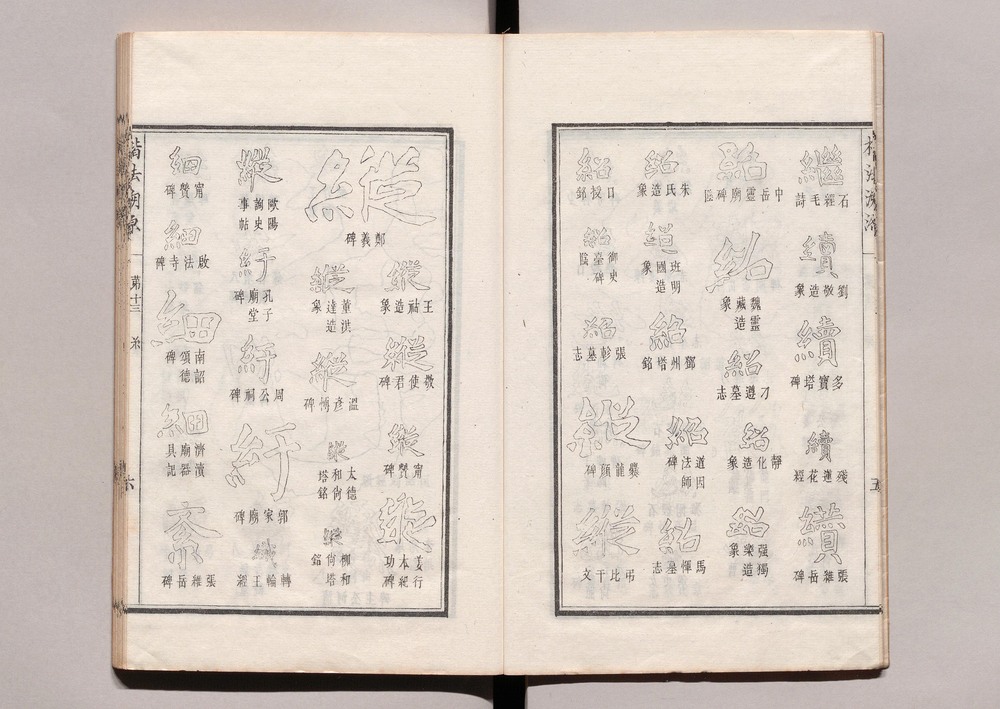 繼
石經毛詩
續
劉敬造象
續
多寶塔碑
續
殘蓮花經
纘
張 岳碑
紹
中岳靈廟碑陰
紹
魏靈藏造象
紹
刁遵墓志
紹
靜化造象
紹
强獨樂造象
紹
朱氏造象
紹
班明國造象
紹
鄧州塔銘
紹
道因法師碑
紹
馬惲墓志
紹
口授銘
紹
御史臺碑陰
紹
張軫墓志
縱
爨龍顏碑
縱
弔比干文
五
縱
鄭義碑
縱
王祐造象
縱
敬使君碑
縱
甯贊碑
縱
姜行本紀功碑
縱
董洪達造象
縱
溫彥博碑
縱
大德和尚塔銘
縱
棚和尚塔銘
縱
歐陽詢史事帖
紆
孔子廟堂碑
紆
周公祠碑
紆
郭家廟碑
纖
轉輪王經
細
甯贊碑
細
啟法寺碑
細
南詔德頌碑
細
濟瀆廟器具記
紊
張 岳碑
楷法溯源
第十三 糸
六